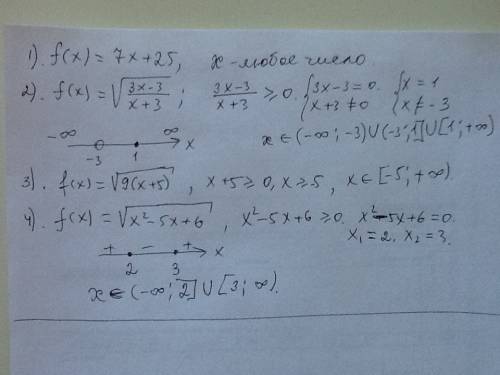 1). f(x) = 7x+25, x - любое число.
2). f(x) = √((3x-3)/(x+3)); (3x-3)/(x+3) ≥ 0. {3x-3=0. x+3≠0 {x=1 x≠-3
-∞ -3 1 ∞ x x∈(-∞; -3)∪(-3; 1]∪[1; +∞)
3). f(x) = √(9(x+5)), x+5≥0, x≥5, x∈[-5; +∞).
4). f(x) = √(x²-5x+6), x²-5x+6≥0. x²-5x+6=0.
x₁=2, x₂=3.
+ - + x
2 3
x∈(-∞; 2]∪[3; ∞).